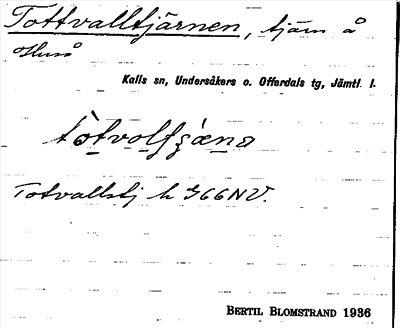 Tottvalltjärnen, tjärn å
Huså
Kalls sn, Undersåkers o. Offerdals tg, Jämtl. l.
Totvallstj k 366NV.
BERTIL BLOMSTRAND 1936